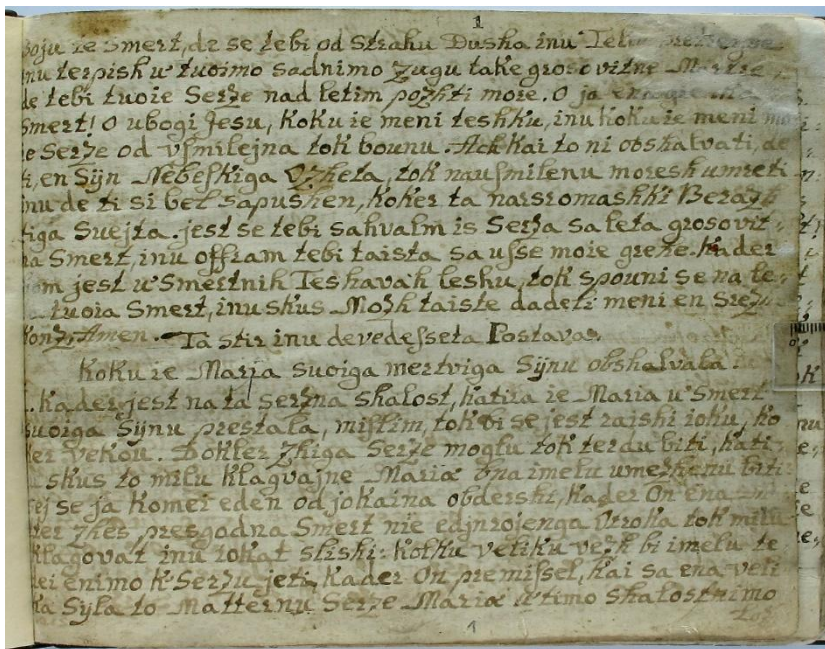 1
boju ie Smert, de se tebi od Strahu Dusha inu Telu
inu terpish u tuoimo sadnimo Zugu take grosovitne Martre
de tebi tuoie Serze nad letim pozhti more. O ja
Smert! O ubogi Jesu, Koku ie meni teshku, inu koku ie meni
ie Serze od vsmilejna tok bounu. Ach kai to ni obshalvati, de
ti, en Sijn Nebeshkiga Ozheta, tok nausmilenu moresh umreti
inu de ti si bel sapushen, koker ta narsromashki
tiga Suejta. jest se tebi sahvalm is Serza sa leta grosovit-
na Smert, inu offram tebi taista sa usse moie greхe. Kader
bom jest u Smertnik Teshavah leshu, tok spouni se na le-
tuoia Smert, inu skus Mozh taiste dadeti meni en
konz, Amen. Ta stir inu devedesseta Postava.
Koku ie Marja suoiga mertviga Sijnu obshalvala.
Kader jest na ta serzna shalost, katira ie Maria u Smert
suoiga Sijnu prestala, mislim, tok bi se jest raishi ioku, ko
ker vekou. Dokler zhiga Serze moglu tok terdu biti, kati-
skus to milu klagvajne Mariæ ona imelu umezhenu biti
sej se ja komei eden od jokaina obdershi, kader On ena
ker zhes presgodna Smert nie edjnrojenga Otroka tok milu
klagovat inu jokat slishi: kolku veliku vezh bi imelu te
dei enimo k Serzu jeti, kader On premissel, kai sa ena veli
ka Syla to Matternu Serze Mariæ u timo shalostnimo
1